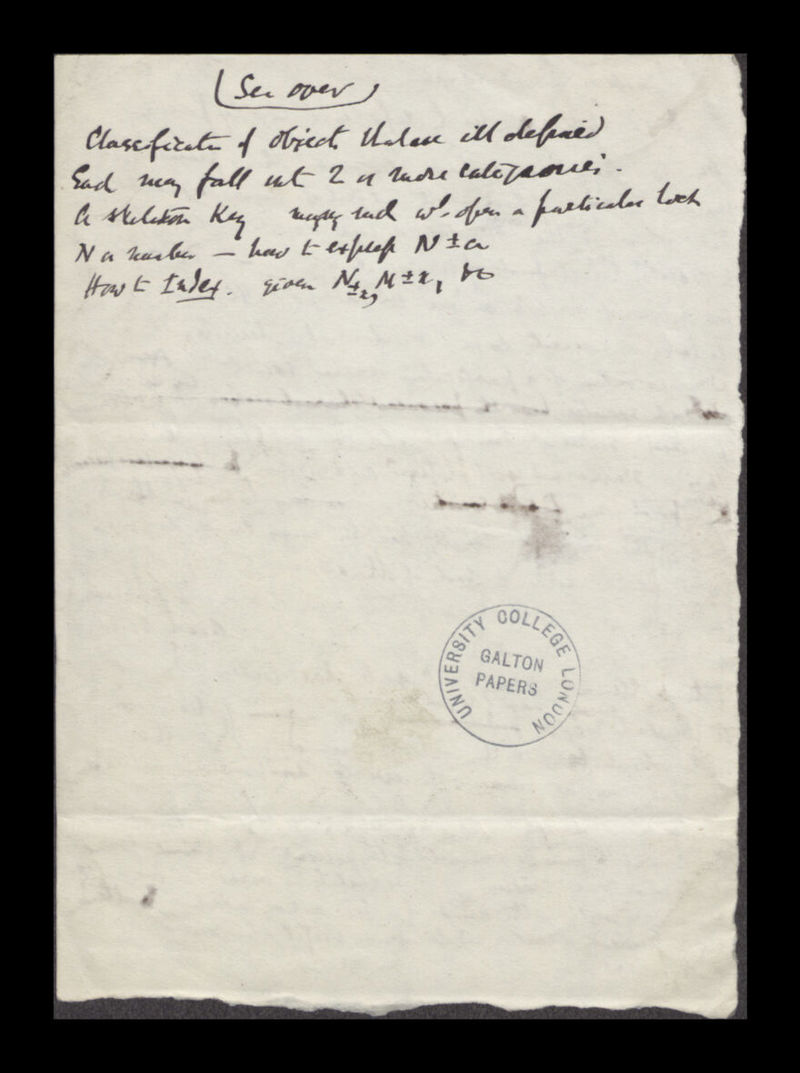 (See over)
Classification of objects that are ill defined
Each may fall into 2 or more categories.
A skeleton key many such wd. open a particular lock
N a number — how to express N ± a
How to Index. given N±x, M±x, &c
UNIVERSITY COLLEGE LONDON
GALTON
PAPERS